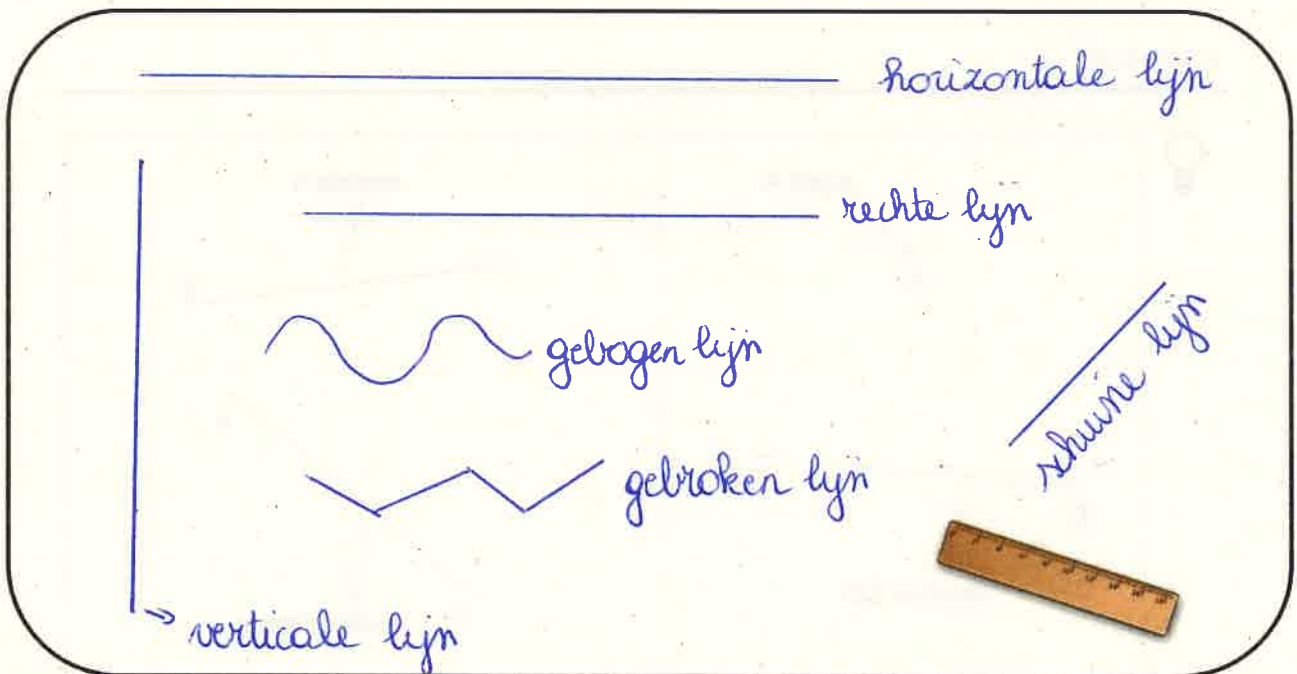 horizontale lijn
rechte lijn
gebogen lijn
schuine lijn
gebroken lijn
→ verticale lijn